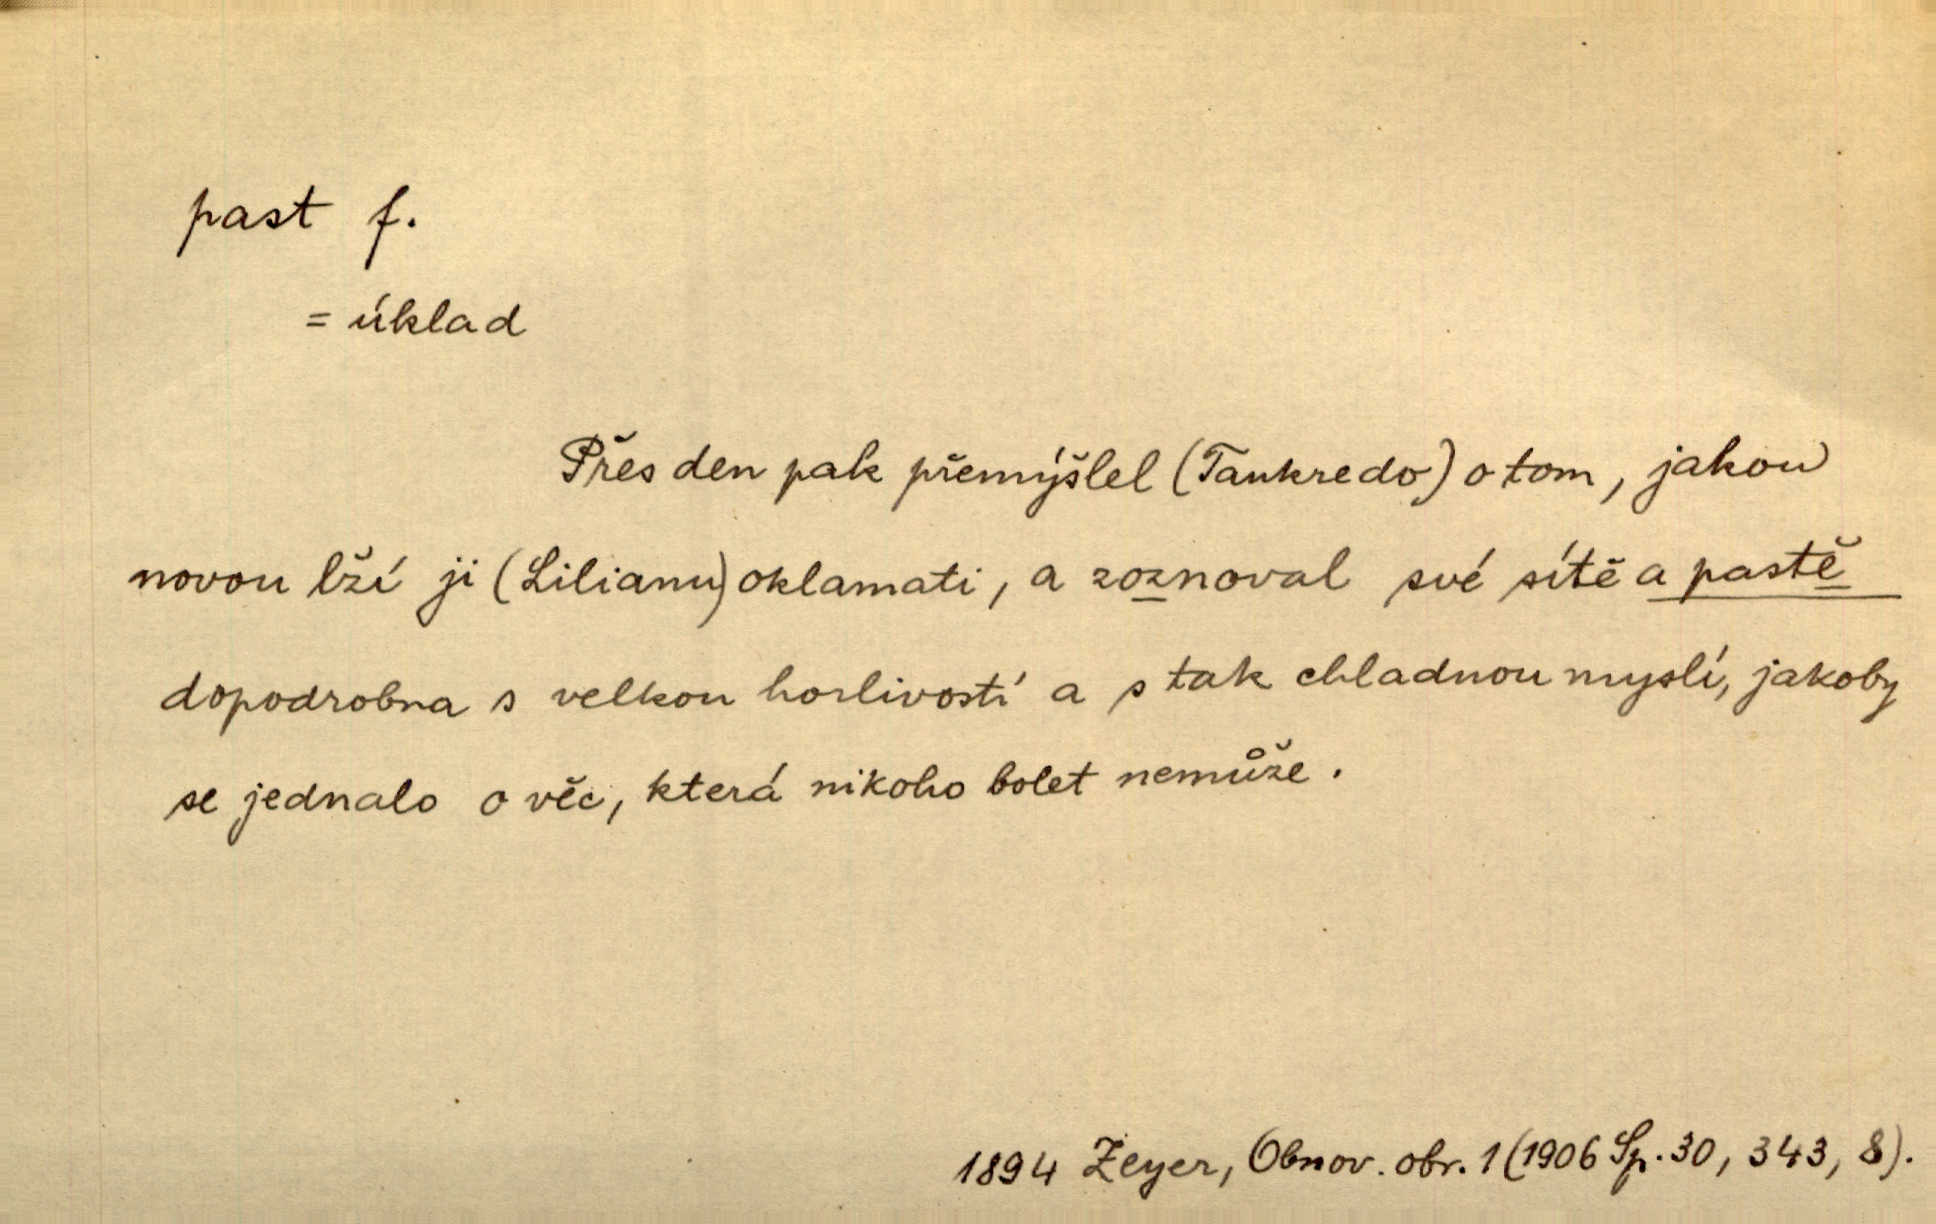 past f.
= úklad
Přes den pak přemýšlel (Tankredo) o tom, jakou
novou lží ji (Lilianu) oklamati, a roznoval své sítě a pastě
dopodrobna s velkou horlivostí a s tak chladnou myslí, jakoby
se jednalo o věc, která nikoho bolet nemůže.
1894 Zeyer, Obnov. obr. 1 (1906 Sp. 30, 343, 8).